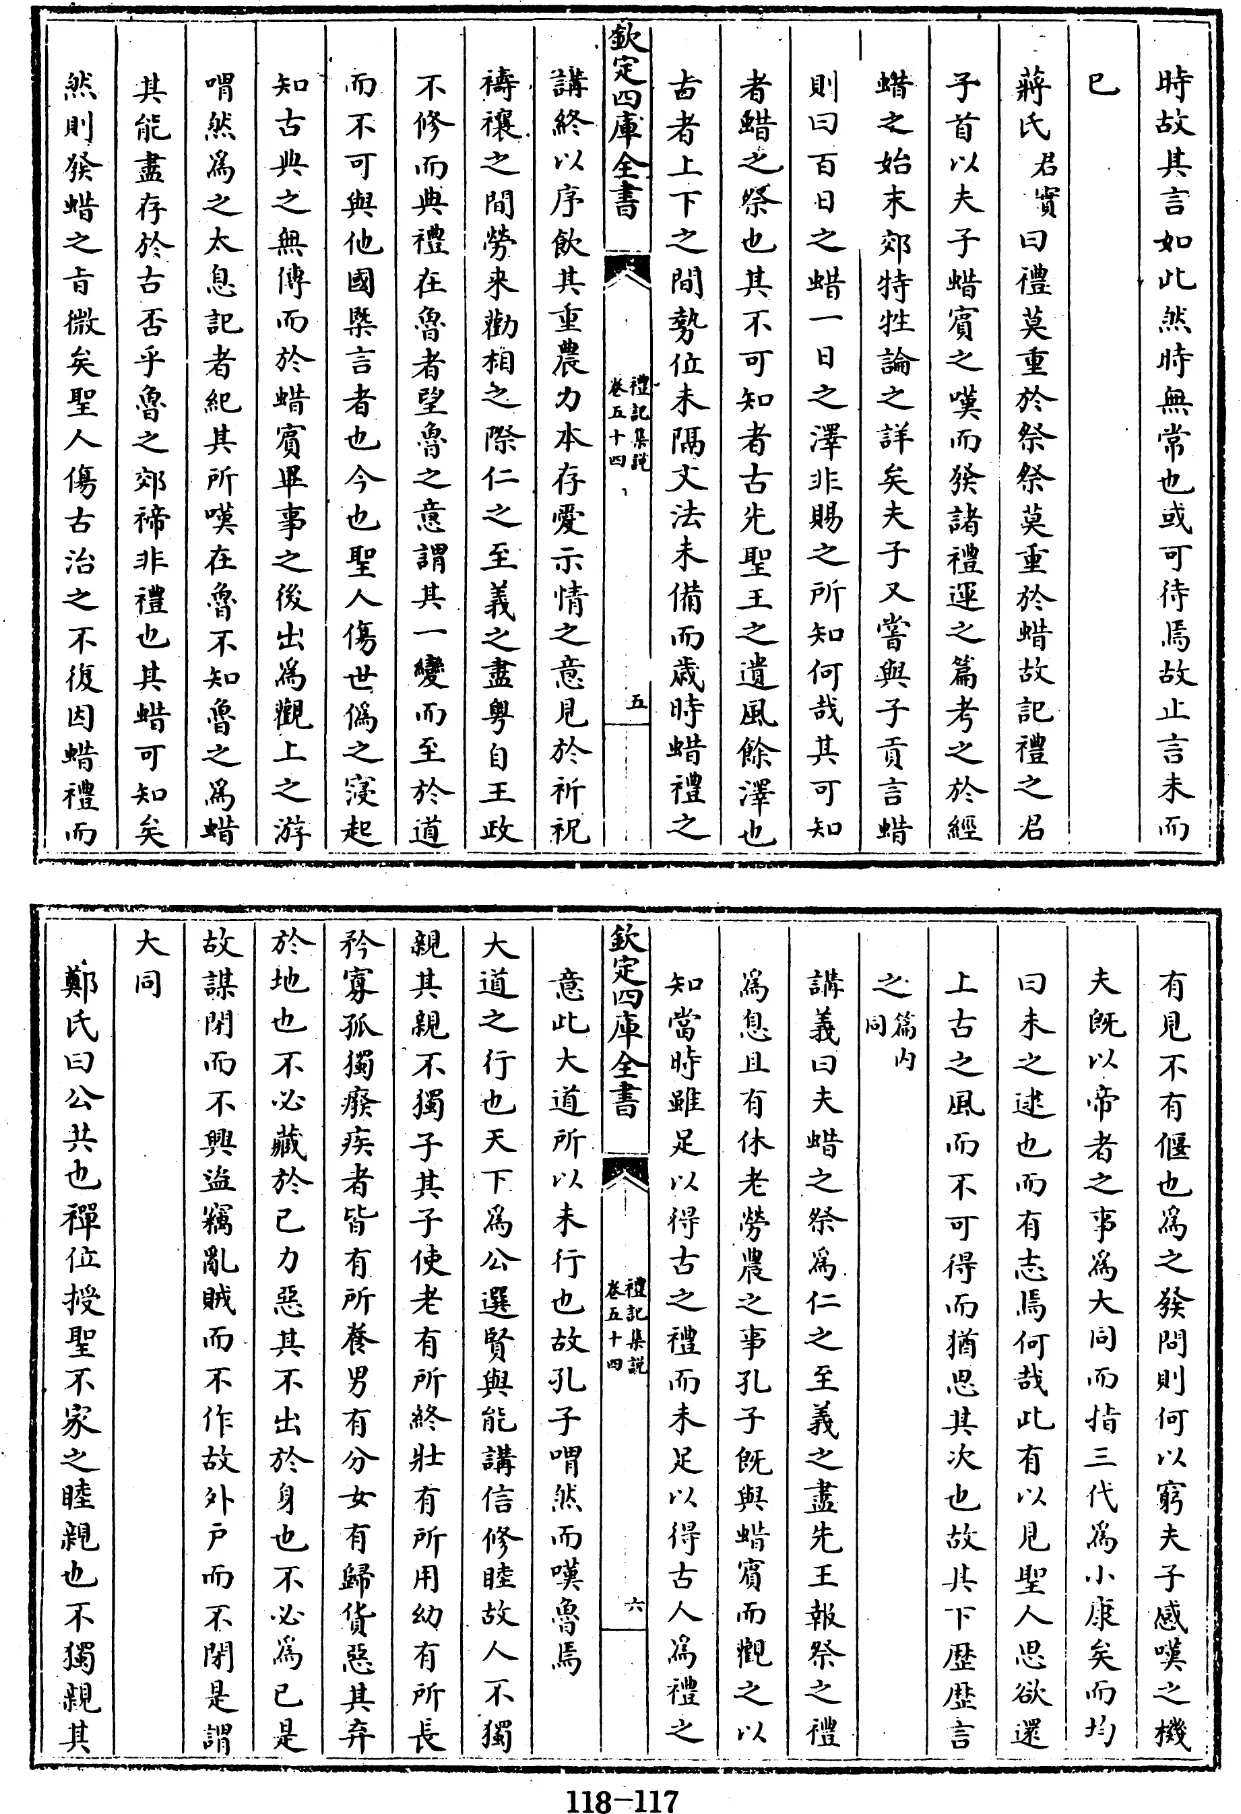 時故其言如此然時無常也或可待焉故止言未而
已
蔣氏君實曰禮莫重於祭祭莫重於蜡故記禮之君
子首以夫子蜡賓之嘆而發諸禮運之篇考之於經
蜡之始末郊特牲論之詳矣夫子又嘗與子貢言蜡
則曰百日之蜡一日之澤非賜之所知何哉其可知
者蜡之祭也其不可知者古先聖王之遺風餘澤也
古者上下之間勢位未隔文法未備而歲時蜡禮之
欽定四庫全書
禮記集說
卷五十四
五
講終以序飲其重農力本存愛示情之意見於祈祝
禱禳之間勞來勸相之際仁之至義之盡粤自王政
不修而典禮在魯者望魯之意謂其一變而至於道
而不可與他國槩言者也今也聖人傷世偽之寖起
知古典之無傳而於蜡賓畢事之後出為觀上之游
喟然為之太息記者紀其所嘆在魯不知魯之為蜡
其能盡存於古否乎魯之郊禘非禮也其蜡可知矣
然則發蜡之旨微矣聖人傷古治之不復因蜡禮而
有見不有偃也為之發問則何以窮夫子感嘆之機
夫既以帝者之事為大同而指三代為小康矣而均
曰未之逮也而有志焉何哉此有以見聖人思欲還
上古之風而不可得而猶思其次也故其下歴歴言
之篇內同
講義曰夫蜡之祭為仁之至義之盡先王報祭之禮
為息且有休老勞農之事孔子既與蜡賓而觀之以
知當時雖足以得古之禮而未足以得古人為禮之
欽定四庫全書
禮記集說
卷五十四
六
意此大道所以未行也故孔子喟然而嘆魯焉
大道之行也天下為公選賢與能講信修睦故人不獨
親其親不獨子其子使老有所終壯有所用幼有所長
矜寡孤獨癈疾者皆有所養男有分女有歸貨惡其弃
於地也不必藏於己力惡其不出於身也不必為己是
故謀閉而不興盜竊亂賊而不作故外戶而不閉是謂
大同
鄭氏曰公共也禪位授聖不家之睦親也不獨親其
118-117